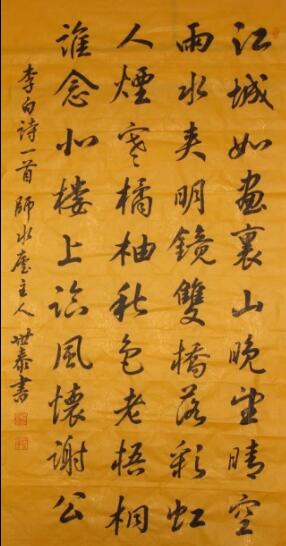 江城如畫裏山晚望晴空
兩水夾明鏡雙橋落彩虹
人煙寒橘柚秋色老梧桐
誰念北樓上臨風懷謝公
李白詩一首師水主人世泰書